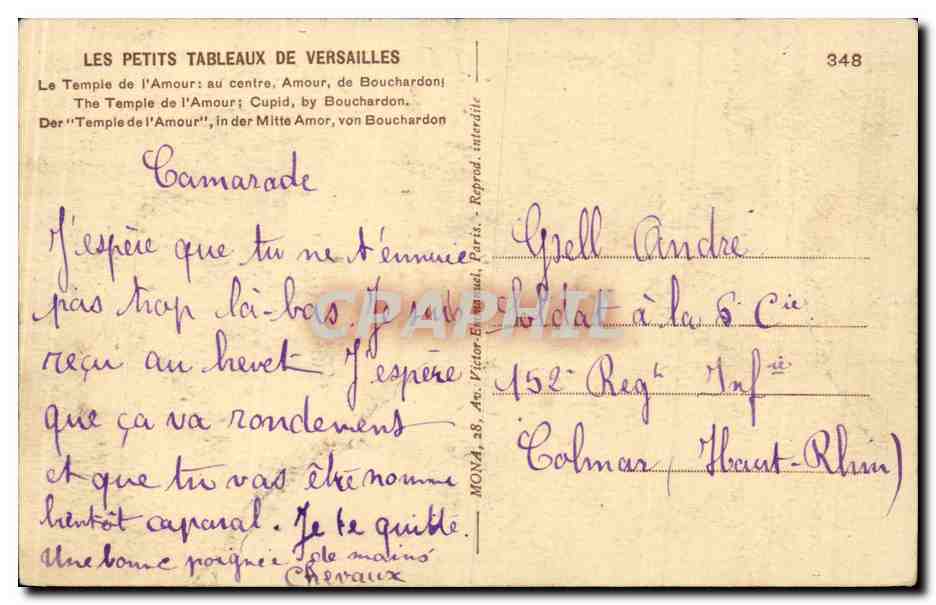 LES PETITS TABLEAUX DE VERSAILLES
Le Temple de l'Amour: au centre, Amour, de Bouchardon;
The Temple de l'Amour; Cupid, by Bouchardon.
Der "Temple de l'Amour", in der Mitte Amor, von Bouchardon
Camarade
J'espère que tu ne t'ennuie
pas trop là-bas. Je suis
reçu au brevet J'espère
que ça va rondement
et que tu vas être nommé
bientôt caporal. Je te quitte.
Une bonne poignée de mains
Chevaux
MONA, 28, Av. Victor-Emmanuel, Paris. - Reprod. interdite
348
Gsell André
Soldat à la 6e Cie
152e Regt Infie
Colmar (Haut-Rhin)
CPAPHIL